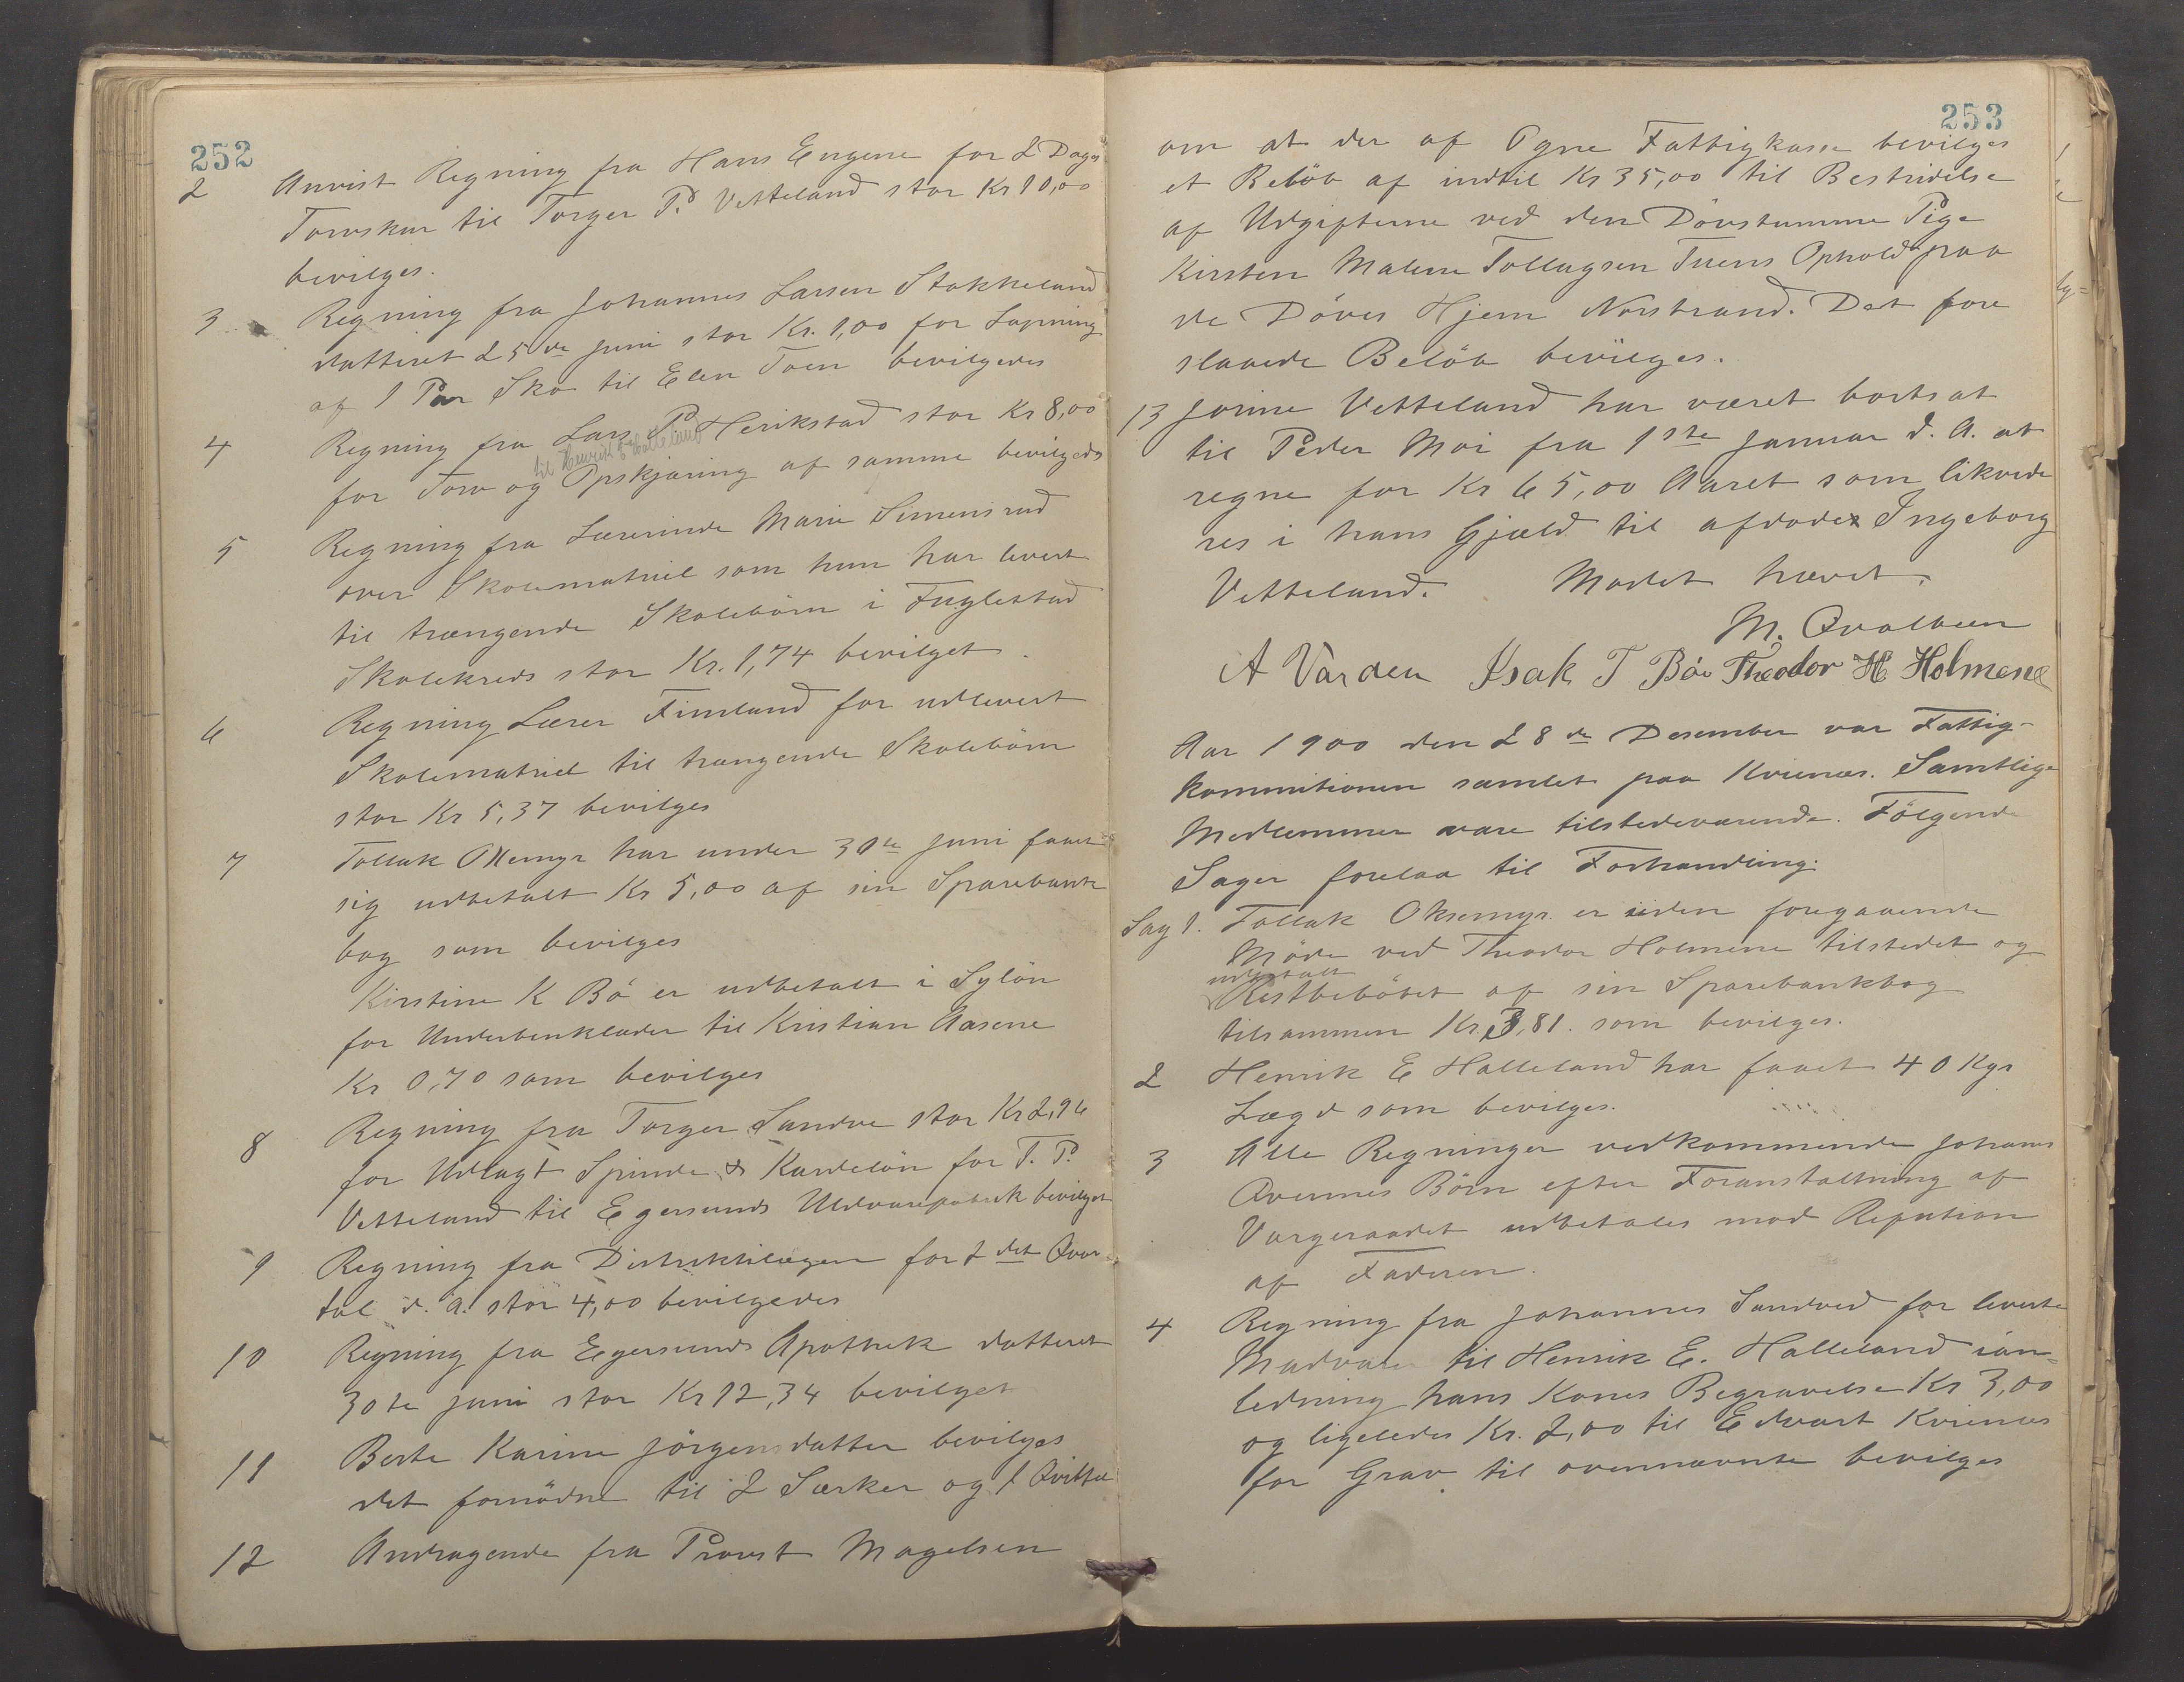 252
2 Anvist Regning fra Hans Eugene for 2 Dages
Torvskur til Torger P. Vetteland stor Kr 10,00
bevilges.
3 Regning fra Johannes Larsen Stokkeland
datteret 25de Juni stor Kr. 1,00 for Lapning
af 1 Par Sko til Elen Toen bevilgedes
4 Regning fra Lars P. Herikstad stor Kr 8,00
til Henrik E Halleland
for Torv og Opskjæring af samme bevilgeds
5 Regning fra Lærerinde Marie Simensrud
over Skolematriel som hun har levert
til trængende Skolebörn i Fuglestad
Skolekreds stor Kr. 1,74 bevilget.
6 Regning Lærer Fimland for udlevert
Skolematriel til trængende Skolebörn
stor Kr 5,37 bevilges
7 Tollak Oxemyr har under 30te Juni faaet
sig udbetalt Kr 5,00 af sin Sparebank
bog som bevilges
Kirstine K Bö er udbetalt i Sylön
for Underbenklæder til Kristian Aasene
Kr 0,70 som bevilges
8 Regning fra Torger Sandve stor Kr 2,96
for Udlagt Spinde & Kardelön for T. P.
Vetteland til Egersunds Uldvarefabrik bevilget
9 Regning fra Distriktslægen for 2det Qvar-
tal d. a. stor 4,00 bevilgedes
10 Regning fra Egersunds Apothek datteret
30te Juni stor Kr 12,34 bevilget
11 Berte Karine Jörgensdatter bevilges
det fornödne til 2 Særker og 1
12 Andragende fra Provst Magelsen
253
om at der af Ogne Fattigkasse bevilges
et Belöb af indtil Kr 35,00 til Bestridelse
af Udgifterne ved den Dövstumme Pige
Kirsten Malene Tollagsen Tuens Ophold paa
de Döves Hjem Norstrand. Det fore
slaaede Belöb bevilges.
13 Jorine Vetteland har været bortsat
til Peder Moi fra 1ste Januar d. A. at
regne for Kr 65,00 Aaret som likvide
res i hans Gjæld til afdöde Ingeborg
Vetteland. Mödet hævet.
M. Qvalbein
A Varden Isak T Böe Theodor H. Holmene
Aar 1900 den 28de Desember var Fattig-
kommitionen samlet paa Kvienes. Samtlige
Medlemmer vare tilstedeværende. Fölgende
Sager forelaa til Forhandling.
Sag 1. Tollak Oksemyr er siden foregaaende
Möde ved Theodor Holmene tilstedet og
udbetalt
Restbelöbet af sin Sparebankbog
tilsammen Kr 3,81. som bevilges.
2 Henrik E Halleland har faaet 40 Kgr
Lægd som bevilges.
3 Alle Regninger vedkommende Johans
Qvennes Börn efter Foranstaltning af
Vergeraadet udbetales mod Refution
af Faderen.
4 Regning fra Johannes Sandved for leverte
Madvarer til Henrik E. Halleland ian-
ledning hans Kones Begravelse Kr 3,00
og ligeledes Kr. 2,00 til Edvart Kvienes
for Grav til ovennævnte bevilges